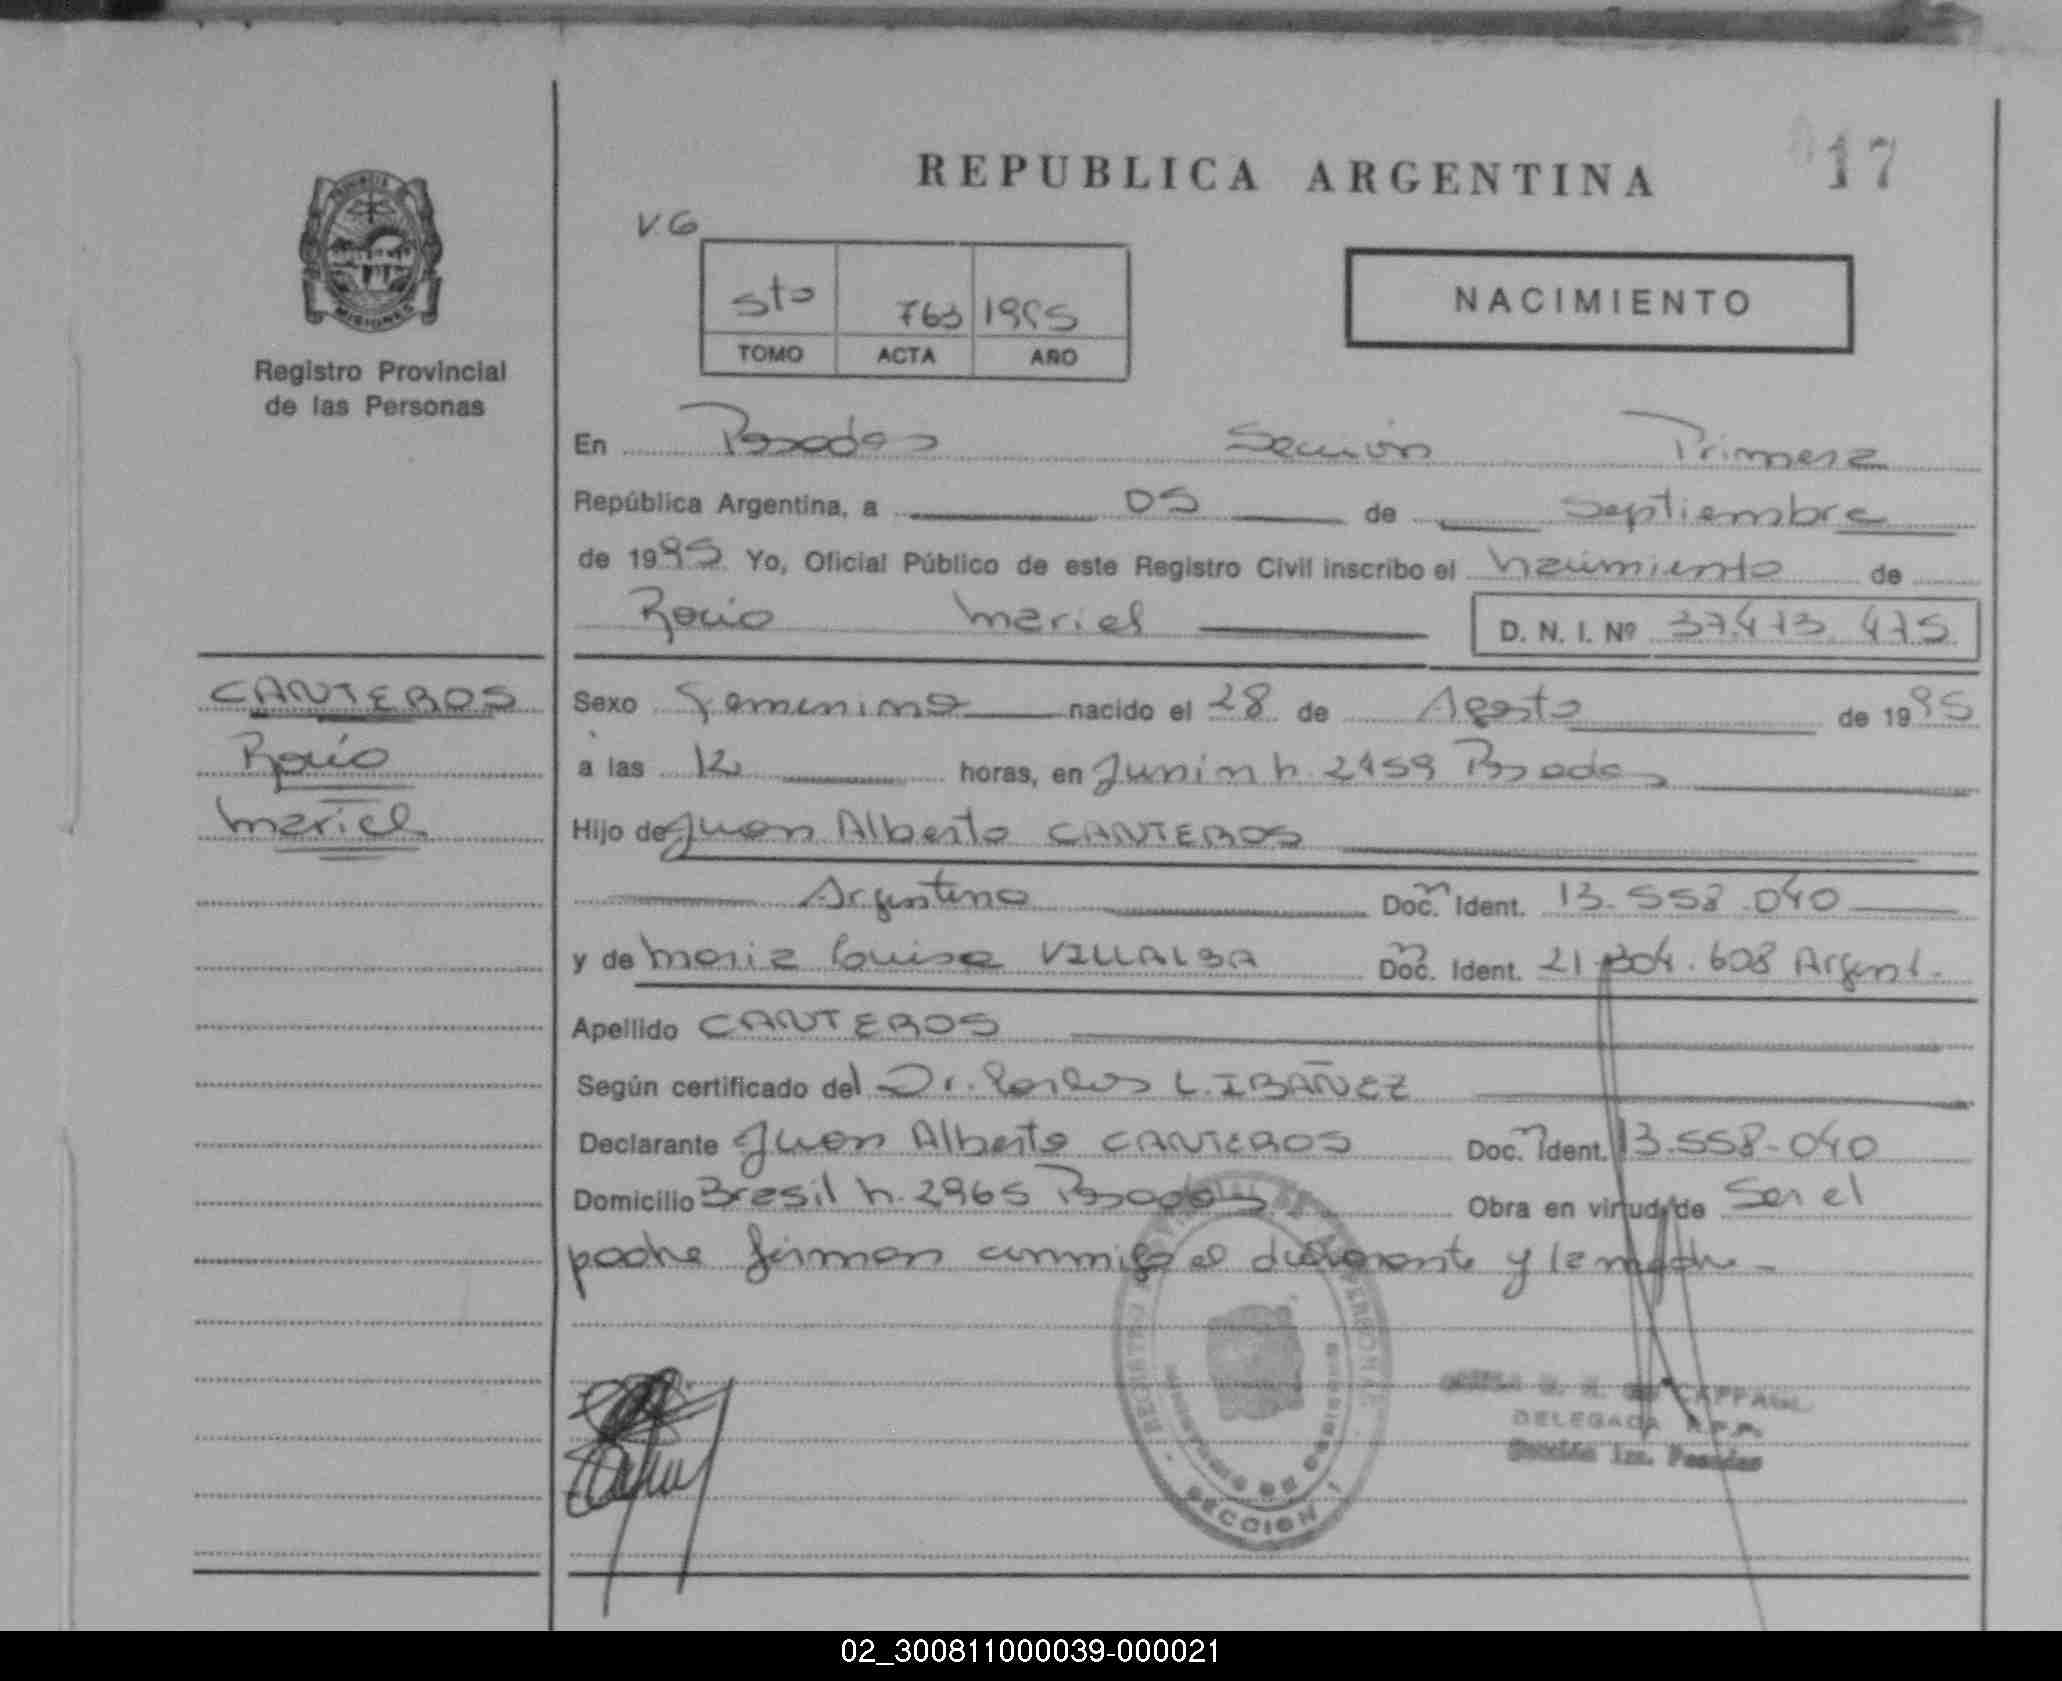 REPUBLICA ARGENTINA
017
V.G
5to 763 1995
TOMO ACTA AÑO
NACIMIENTO
PROVINCIA DE
MISIONES
Registro Provincial
de las Personas
En Posadas Sección Primera
República Argentina, a 05 de Septiembre
de 1995 Yo, Oficial Público de este Registro Civil inscribo el nacimiento de
Rocio Mariel D. N. I. Nº 37.473.475
CANTEROS
Rocío
Mariel
Sexo Femenino nacido el 28 de Agosto de 1995
a las 12 horas, en Junin n. 2459 Posadas
Hijo de Juan Alberto CANTEROS
Argentino Doc. Ident. 13.558.040
y de Maria Luisa VILLALBA Doc. Ident. 21.304.608 Argent.
Apellido CANTEROS
Según certificado del Dr. Carlos L. IBAÑEZ
Declarante Juan Alberto CANTEROS Doc. Ident. 13.558.040
Domicilio Bresil n. 2965 Posadas Obra en virtud de Ser el
padre firman conmigo el declarante y la madre -
REGISTRO PROVINCIAL DE LAS PERSONAS
MINISTERIO DE GOBIERNO
SECCION 1
DELEGADA R.P.P.
Sección 1ra. Posadas
02_300811000039-000021